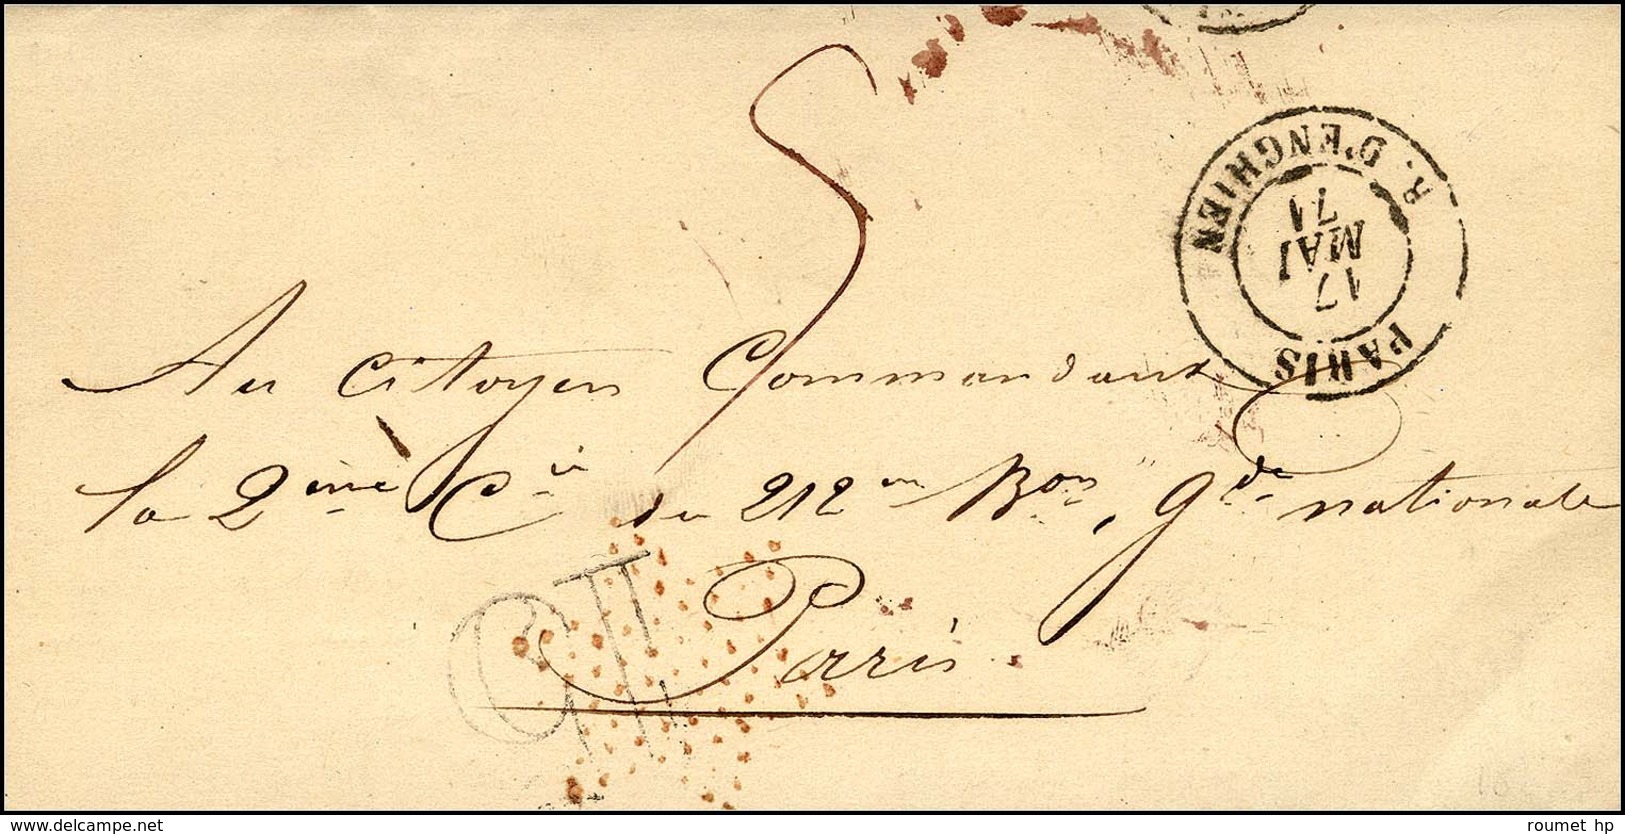 PARIS
17
MAI
71
R. D'ENGHIEN
Au Citoyen Commandant
la 2ème Cie du 212em Bon, gde nationale
Paris.
delcampe.net
roumet hp